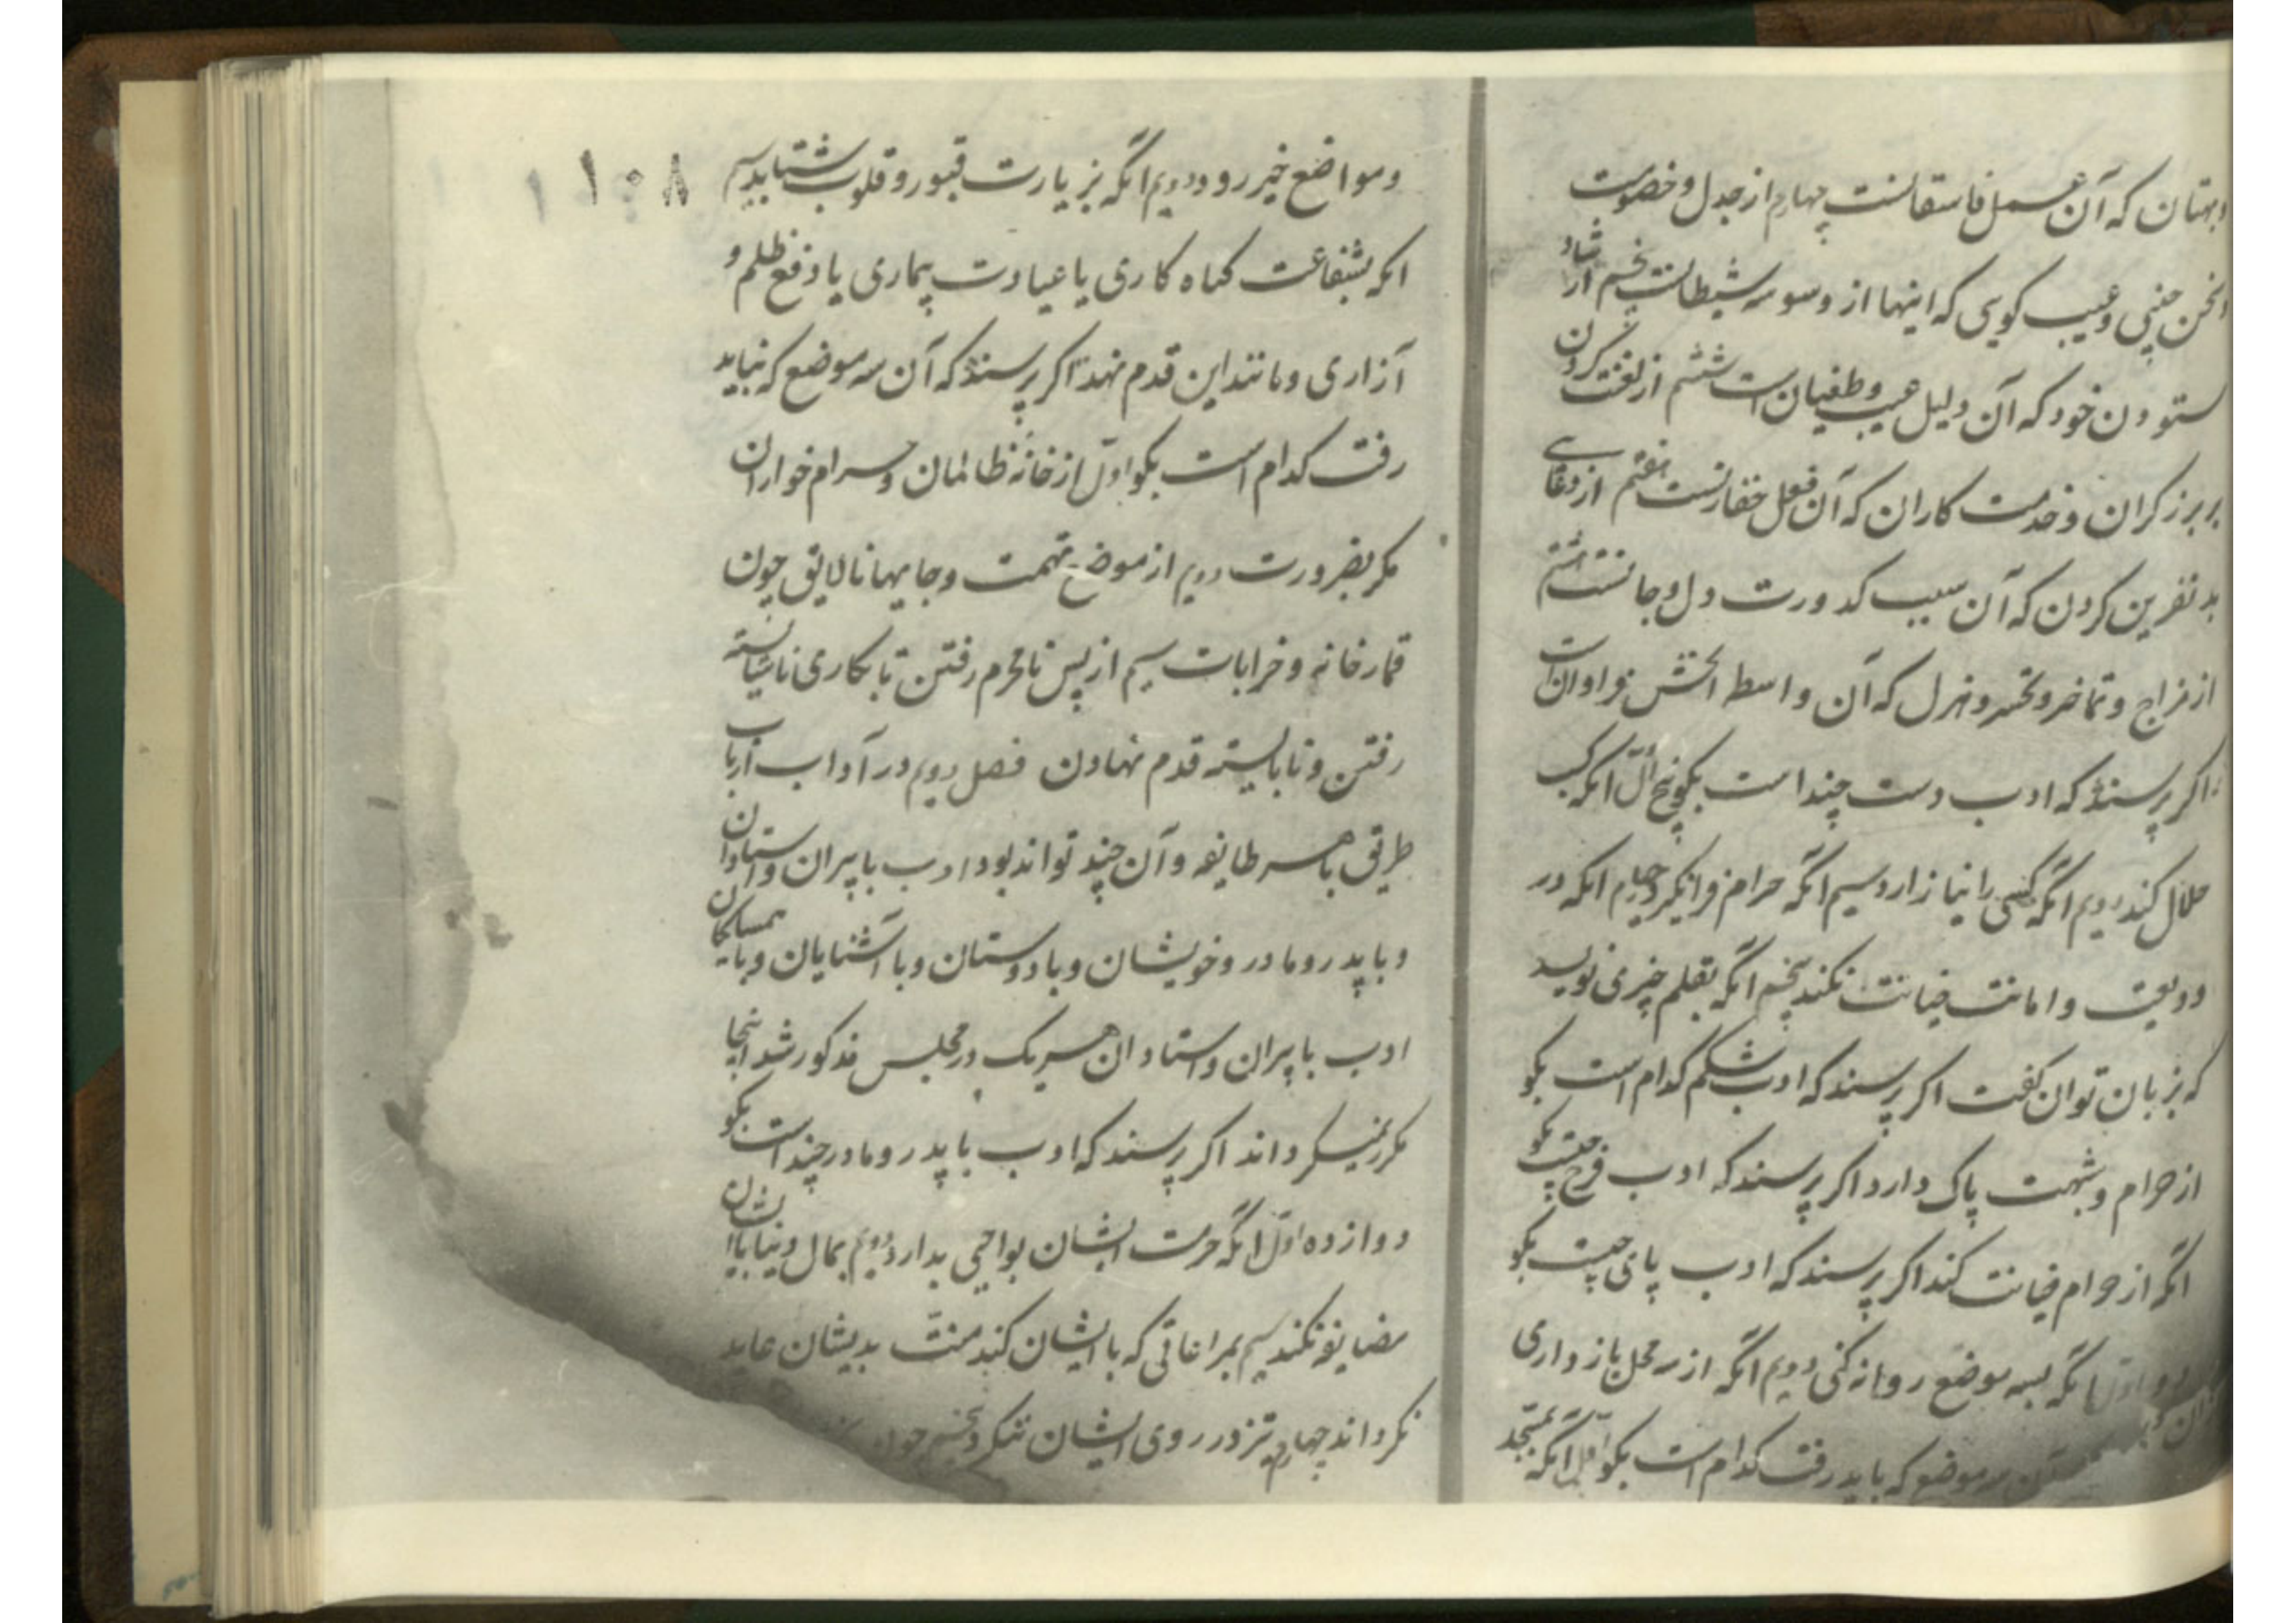 وبهتان که آن عمل فاسقانست چهارم از جدل و خصومت
وسخن چینی و عیب کویی که اینها از وسوسه شیطانست پنجم از شاد
ستودن خود که آن دلیل عیب و طغیان است ششم از لعنت کردن
بر برزکران و خدمت کاران که آن فعل هفتم از دعای
بد نفرین کردن که آن سبب کدورت دل و جانست هشتم
از مزاح و تماخر و تمسخر و هزل که آن واسطه فراوان است
اکر پرسند که ادب دست چند است بکو پنج اول انکه کسب
حلال کند دویم انکه کسی را نیازارد سیم انکه حرام فرانکیرد چهارم انکه در
ودیعت و امانت خیانت نکند پنجم انکه بقلم چیزی نویسد
که بزبان توان کفت اکر پرسند که ادب شکم کدام است بکو
از حرام و شبهت پاک دارد اکر پرسند که ادب فرج چیست بکو
انکه از حرام خیانت کند اکر پرسند که ادب پای چیست بکو
دو اول انکه بسه موضع روانه کنی دویم انکه از سه محل باز داری
آن سه موضع که باید رفت کدام است بکو اول انکه بمسجد
۱۰۸
و مواضع خیر رود دویم انکه بزیارت قبور و قلوب شتابد سیم
انکه بشفاعت کناه کاری یا عیادت بیماری یا دفع ظلم و
آزاری و مانند این قدم نهد اکر پرسند که آن سه موضع که نباید
رفت کدام است بکو اول از خانه ظالمان و حرام خواران
مکر بضرورت دویم از موضع تهمت و جایهاء نالایق چون
قمارخانه و خرابات سیم از پس نامحرم رفتن تا بکاری ناشایسته
رفتن و نابایسته قدم نهادن فصل دویم در آداب ارباب
طریق با هر طایفه و آن چند تواند بود ادب با پیران و استادان
و با پدر و مادر و خویشان و با دوستان و با آشنایان و با همسایکان
ادب با پیران و استادان هر یک در محلس مذکور شد اینجا
مکرر نمیکرداند اکر پرسند که ادب با پدر و مادر چند است بکو
دوازده اول انکه حرمت ایشان بواجبی بدارد دویم بمال دنیا با ایشان
مضایقه نکند سیم بمراعاتی که با ایشان کند منت بدیشان عاید
نکرداند چهارم تیز در روی ایشان ننکرد پنجم چون